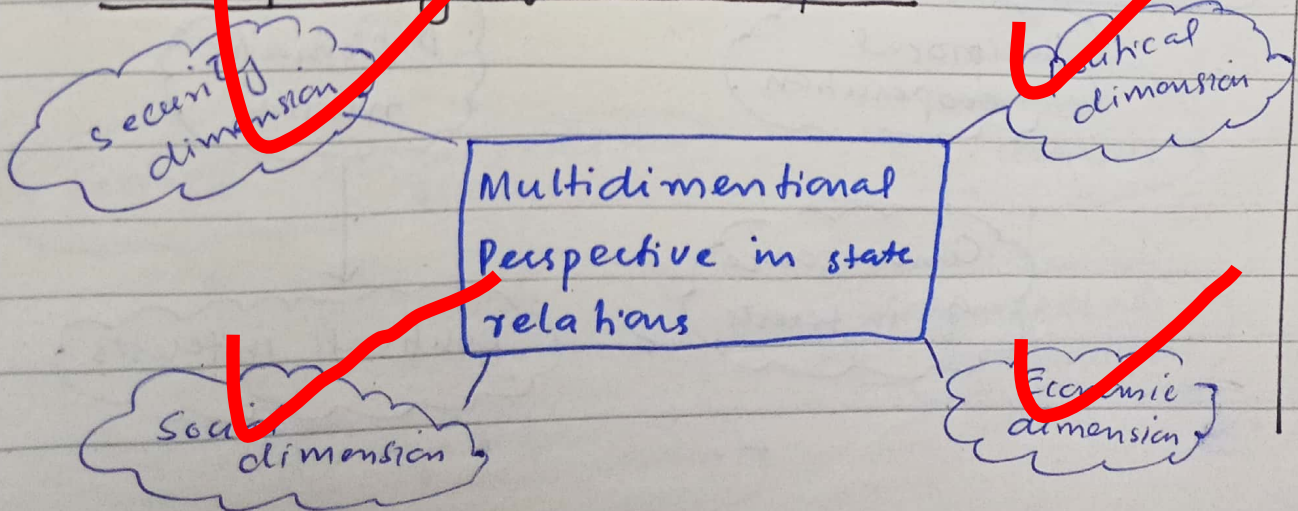 security
dimension
Political
dimension
Multidimentional
Perspective in state
relations
Social
dimension
Economic
dimension